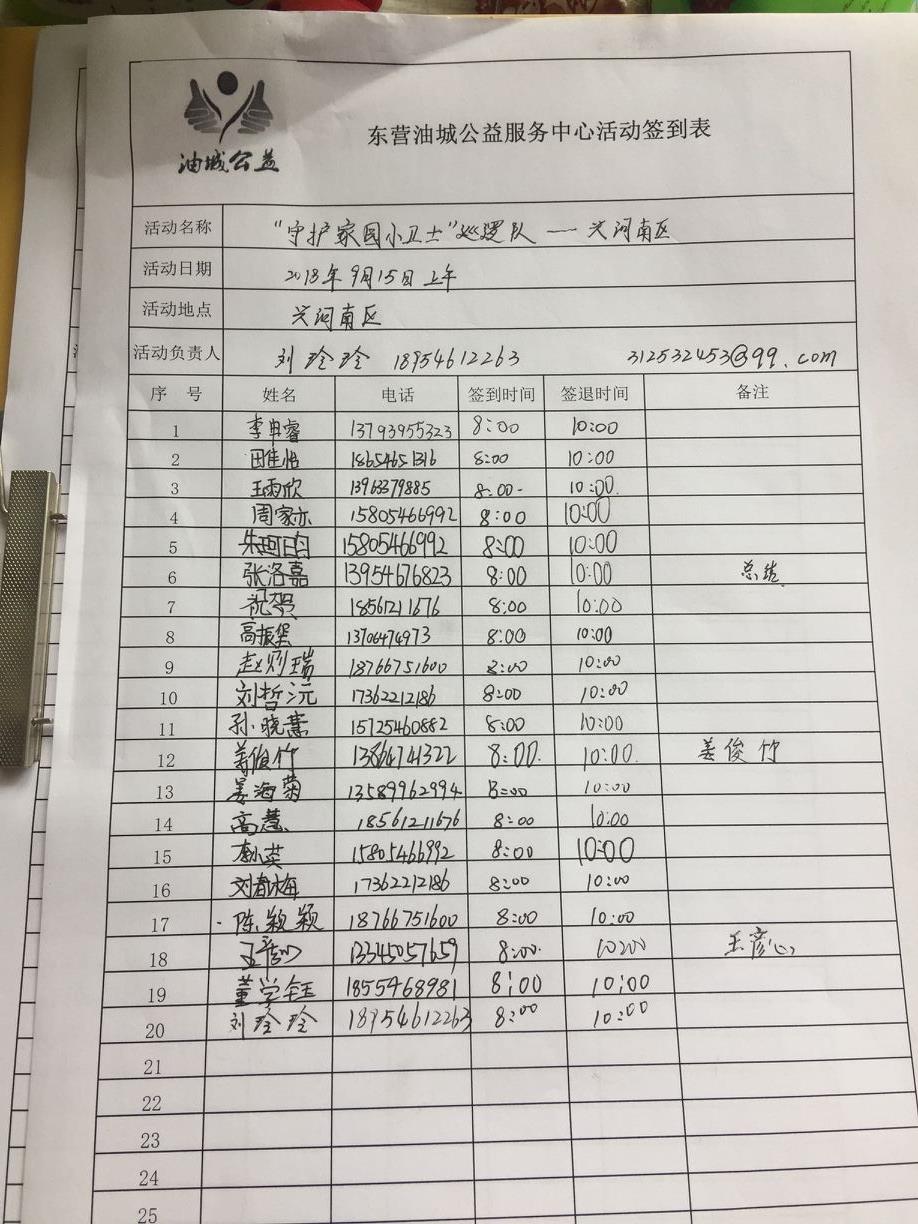 油城公益
东营油城公益服务中心活动签到表
活动名称 "守护家园小卫士"巡逻队 — 兴河南区
活动日期 2018年9月15日上午
活动地点 兴河南区
活动负责人 刘玲玲 18954612263 312532453@qq.com
序 号 姓名 电话 签到时间 签退时间 备注
1 李申睿 13793955323 8:00 10:00
2 田佳怡 18654651316 8:00 10:00
3 王雨欣 13963379885 8:00 10:00
4 周家亦 15805466992 8:00 10:00
5 15805466992 8:00 10:00
6 张洛嘉 13954676823 8:00 10:00 总结
7 祝贺 18561211676 8:00 10:00
8 高振堡 13706474973 8:00 10:00
9 18766751600 8:00 10:00
10 刘哲沅 17362212186 8:00 10:00
11 孙晓蕙 15725460882 8:00 10:00
12 姜俊竹 13864741322 8:00 10:00 姜俊竹
13 姜海菊 13589962994 8:00 10:00
14 高慧 18561211676 8:00 10:00
15 15805466992 8:00 10:00
16 刘春梅 17362212186 8:00 10:00
17 陈颖颖 18766751600 8:00 10:00
18 13345057659 8:00 10:00 王彦心
19 董学钰 1855468981 8:00 10:00
20 刘玲玲 18954612263 8:00 10:00
21
22
23
24
25